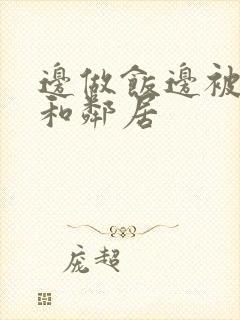 邊做飯邊被
和鄰居
庞超